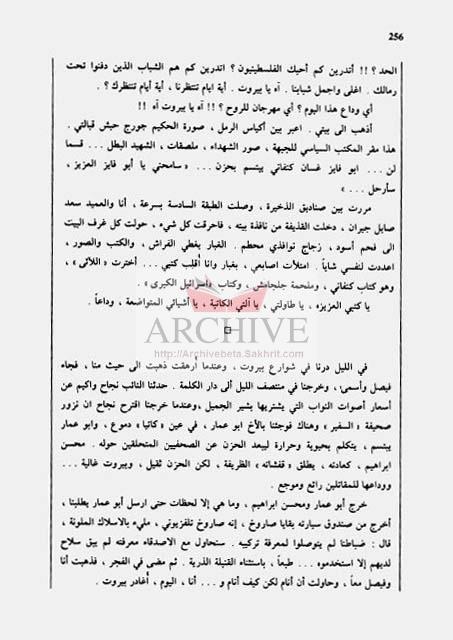 256
الحد ؟ !! أتدرين كم أحبك الفلسطينيون ؟ اتدرين كم هم الشباب الذين دفنوا تحت
رمالك . اغلى واجمل شبابنا . آه يا بيروت . أية ايام تنتظرنا ، أية أيام تنتظرك ؟ .
أي وداع هذا اليوم ؟ أي مهرجان للروح ؟ !! آه يا بيروت آه !!
أذهب الى بيتي . اعبر بين أكياس الرمل ، صورة الحكيم جورج حبش قبالتي .
هذا مقر المكتب السياسي للجبهة ، صور الشهداء ، ملصقات ، الشهيد البطل ... قسما
لن ... ابو فايز غسان كنفاني يبتسم بحزن ... « سامحني يا أبو فايز العزيز ،
سأرحل ... »
مررت بين صناديق الذخيرة ، وصلت الطبقة السادسة بسرعة ، أنا والعميد سعد
صايل جيران ، دخلت القذيفة من نافذة بيته ، فاحرقت كل شيء ، حولت كل غرف البيت
الى فحم أسود ، زجاج نوافذي محطم . الغبار يغطي الفراش ، والكتب والصور ،
اعددت لنفسي شاياً . امتلأت اصابعي ، بغبار وانا أقلب كتبي ... أخترت « اللائى » ،
وهو كتاب كنفاني ، وملحمة جلجامش ، وكتاب « اسرائيل الكبرى » .
يا كتبي العزيزه ، يا طاولتي ، يا آلتي الكاتبة ، يا أشيائي المتواضعة ، وداعاً .
ARCHIVE
http://Archivebeta.Sakhrit.com
في الليل درنا في شوارع بيروت ، وعندما أرهقت ذهبت الى حيث منا ، فجاء
فيصل وأسمى ، وخرجنا في منتصف الليل ألى دار الكلمة . حدثنا النائب نجاح واكيم عن
أسعار أصوات النواب التي يشتريها بشير الجميل ،وعندما خرجنا اقترح نجاح ان نزور
صحيفة « السفير » وهناك فوجئنا بالأخ ابو عمار ، في عين « كاتيا » دموع ، وابو عمار
يبتسم ، يتكلم بحيوية وحرارة ليبعد الحزن عن الصحفيين المتحلقين حوله . محسن
ابراهيم ، كعادته ، يطلق « قفشاته » الظريفة ، لكن الحزن ثقيل ، وبيروت غالية ...
ووداعها للمقاتلين رائع وموجع .
خرج أبو عمار ومحسن ابراهيم ، وما هي إلا لحظات حتى ارسل أبو عمار يطلبنا ،
أخرج من صندوق سيارته بقايا صاروخ ، إنه صاروخ تلفزيوني ، مليء بالاسلاك الملونة ،
قال : ضباطنا لم يتوصلوا لمعرفة تركيبه . سنحاول مع الاصدقاء معرفته لم يبق سلاح
لديهم إلا استخدموه ... طبعاً ، باستثناء القنبلة الذرية . ثم مضى في الفجر ، فذهبت أنا
وفيصل معاً ، وحاولت أن أنام لكن كيف أنام و ... أنا ، اليوم ، أغادر بيروت .